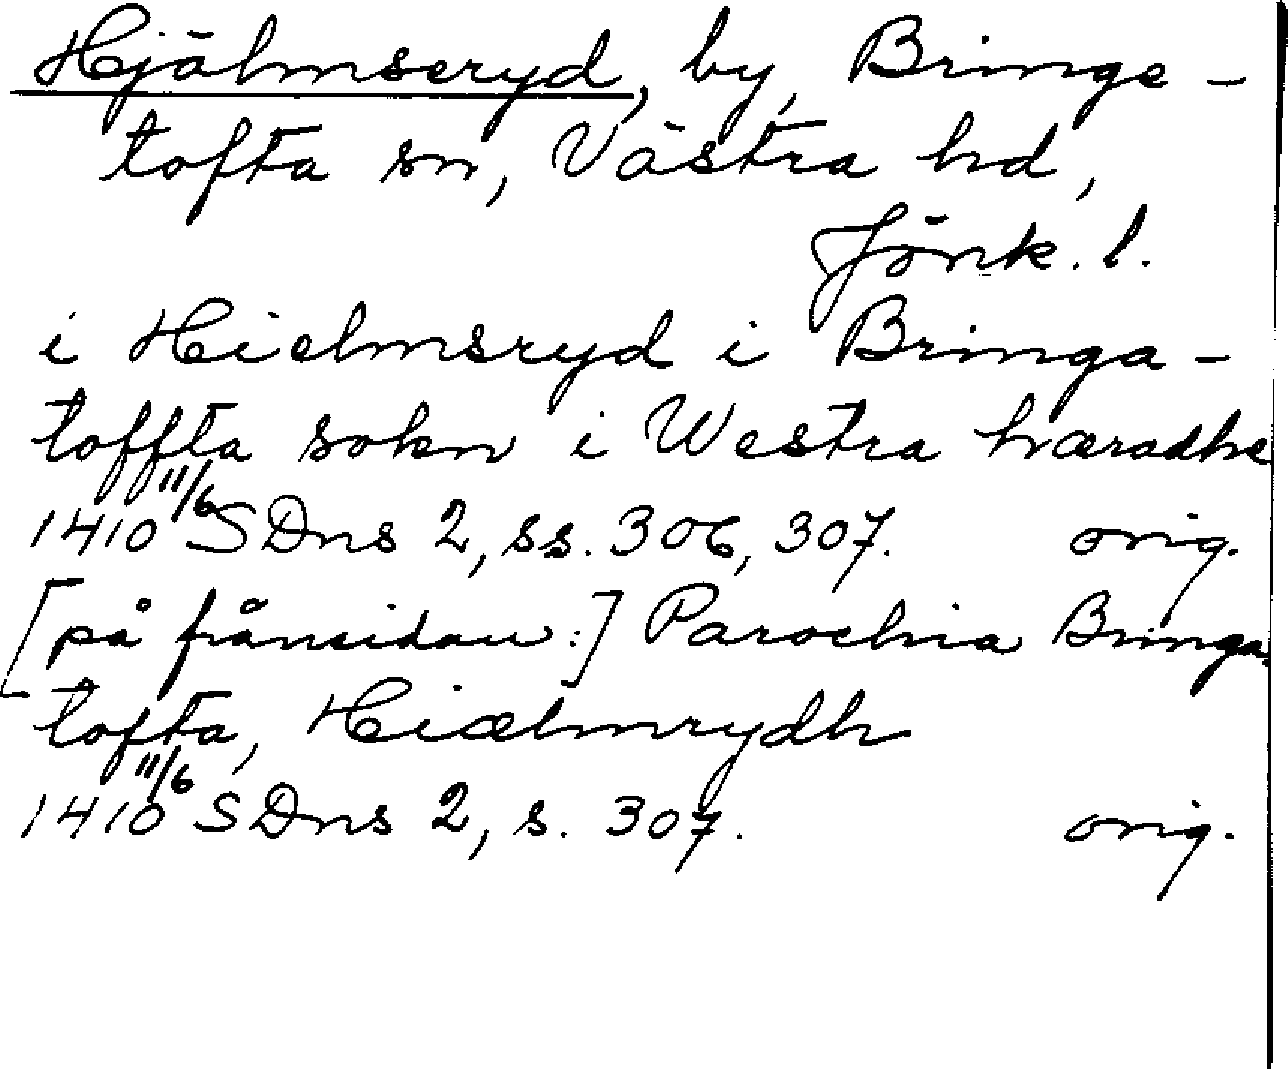 Hjälmseryd, by, Bringe-
tofta sn, Västra hd,
Jönk. l.
i Hielmsryd i Bringa-
toffta sokn i Westra hæradhe
1410 11/6 SDns 2, ss. 306, 307. orig.
[på frånsidan:] Parochia Bringa-
tofta, Hiælmrydh
1410 11/6 SDns 2, s. 307. orig.